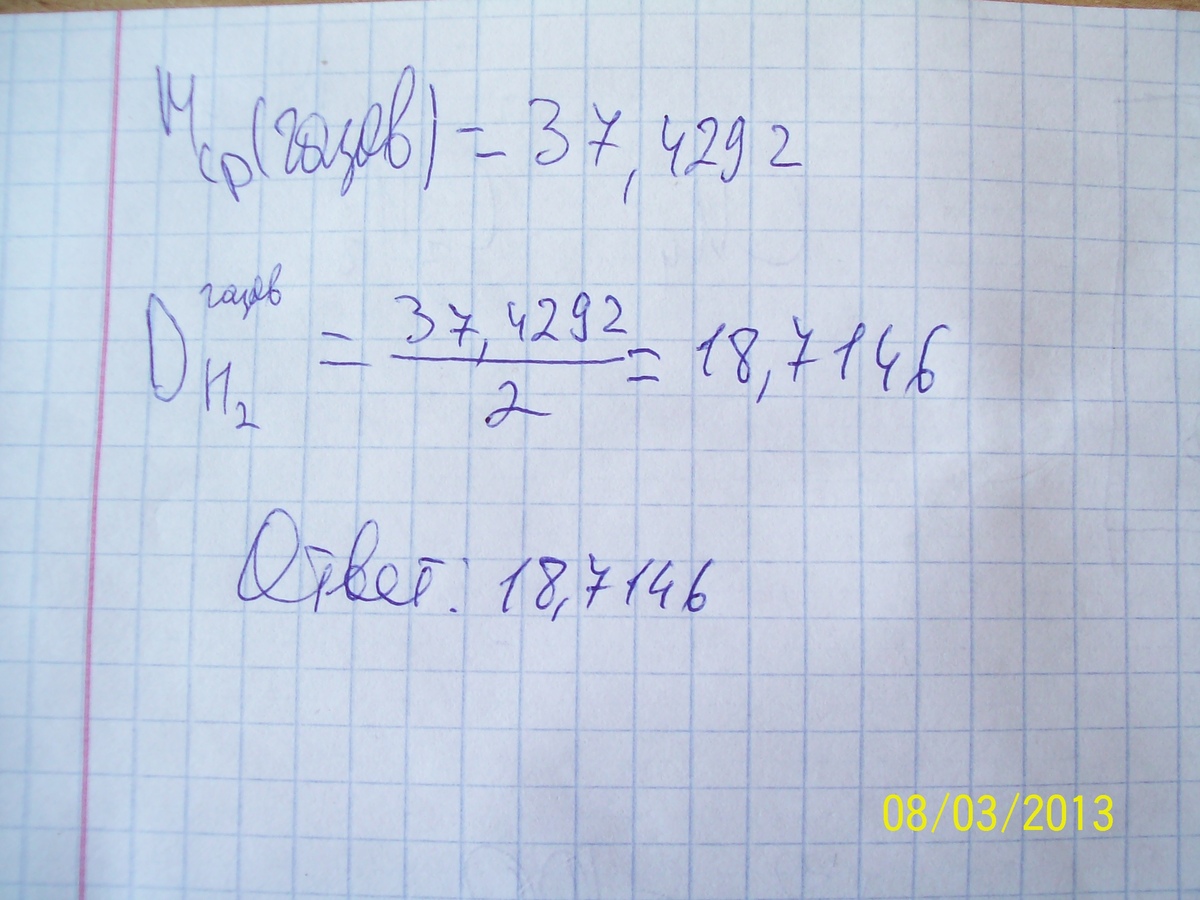 Mср(газов) = 37,4292
D газов H2 = 37,4292 / 2 = 18,7146
Ответ: 18,7146
08/03/2013